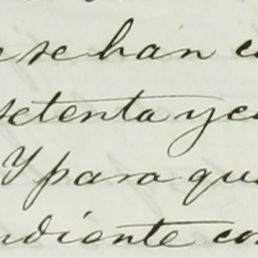 e se han c
setenta y c
Y para qu
ndiente con